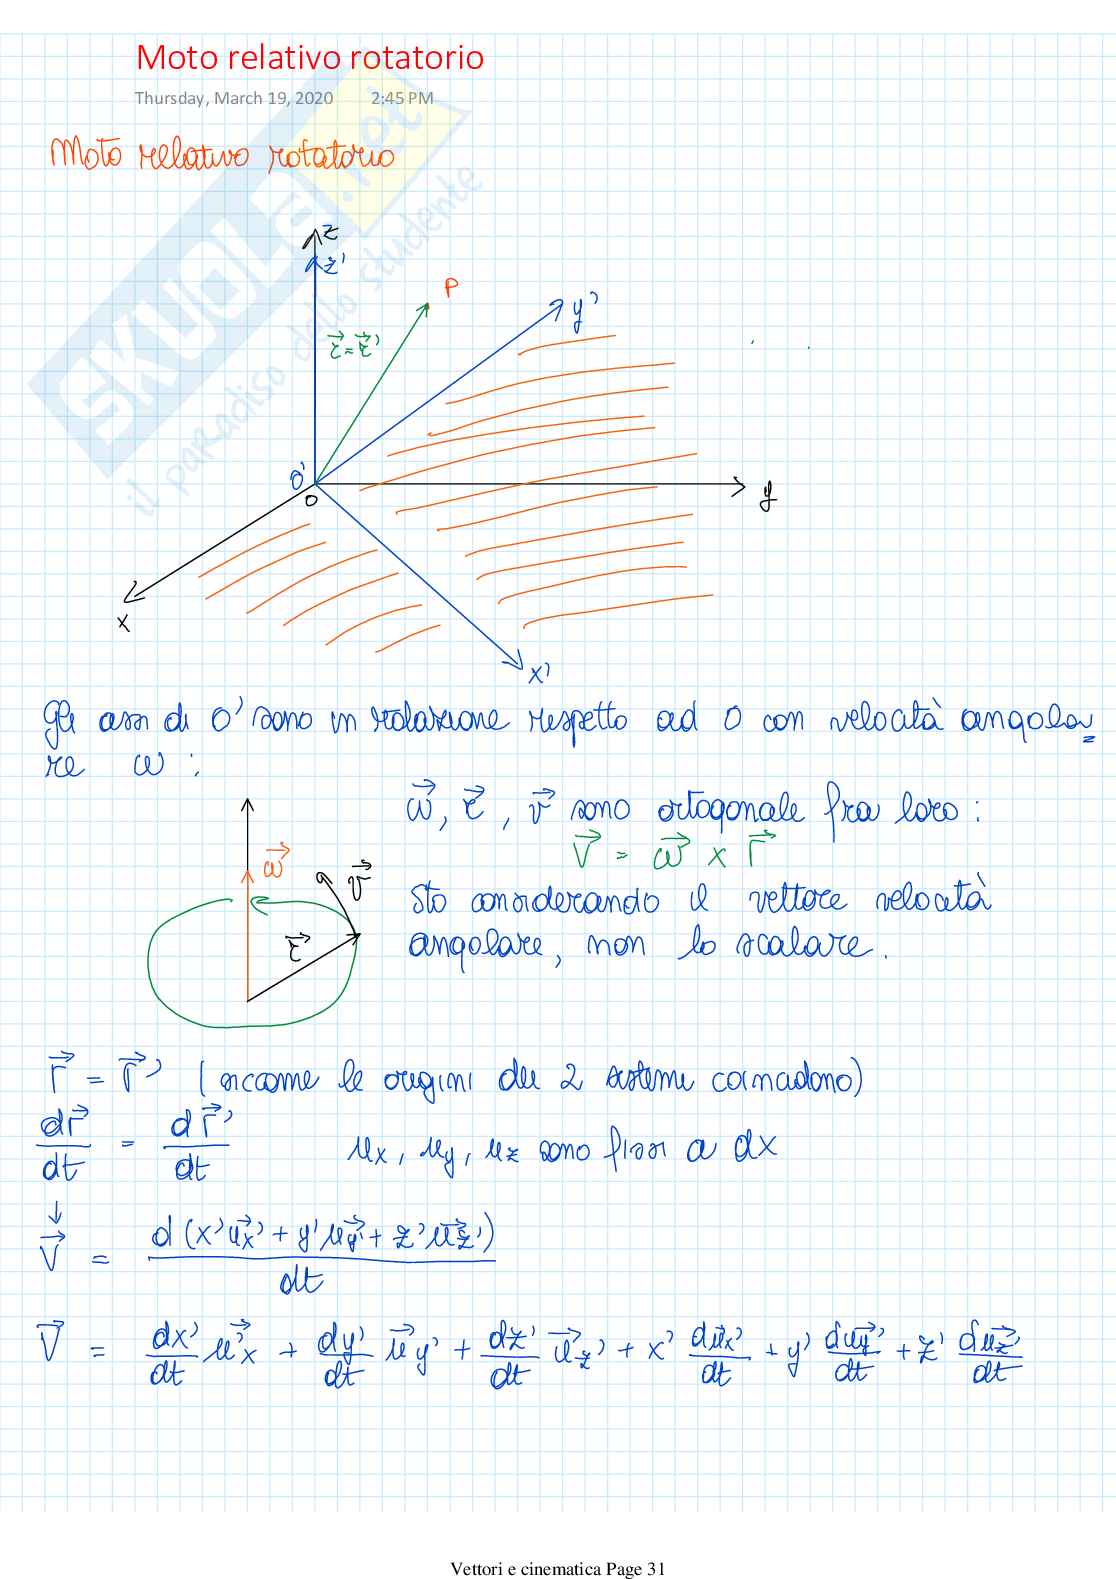 Moto relativo rotatorio
Thursday, March 19, 2020 2:45 PM
Moto relativo rotatorio
SKUOLA.net
il paradiso dello studente
z
z'
P
y'
r⃗ = r⃗'
O'
O
y
x
x'
Gli assi di O' sono in rotazione rispetto ad O con velocità angola=
re ω :
ω⃗, r⃗, v⃗ sono ortogonale fra loro :
v⃗ = ω⃗ × r⃗
ω⃗
v⃗
r⃗
Sto considerando il vettore velocità
angolare, non lo scalare.
r⃗ = r⃗' (siccome le origini dei 2 sistemi coincidono)
dr⃗/dt = dr⃗'/dt ux, uy, uz sono fissi a dx
↓
v⃗ = d(x'u⃗x' + y'u⃗y' + z'u⃗z')/dt
v⃗ = dx'/dt u⃗'x + dy'/dt u⃗y' + dz'/dt u⃗'z' + x' du⃗x'/dt + y' du⃗y'/dt + z' du⃗z'/dt
Vettori e cinematica Page 31